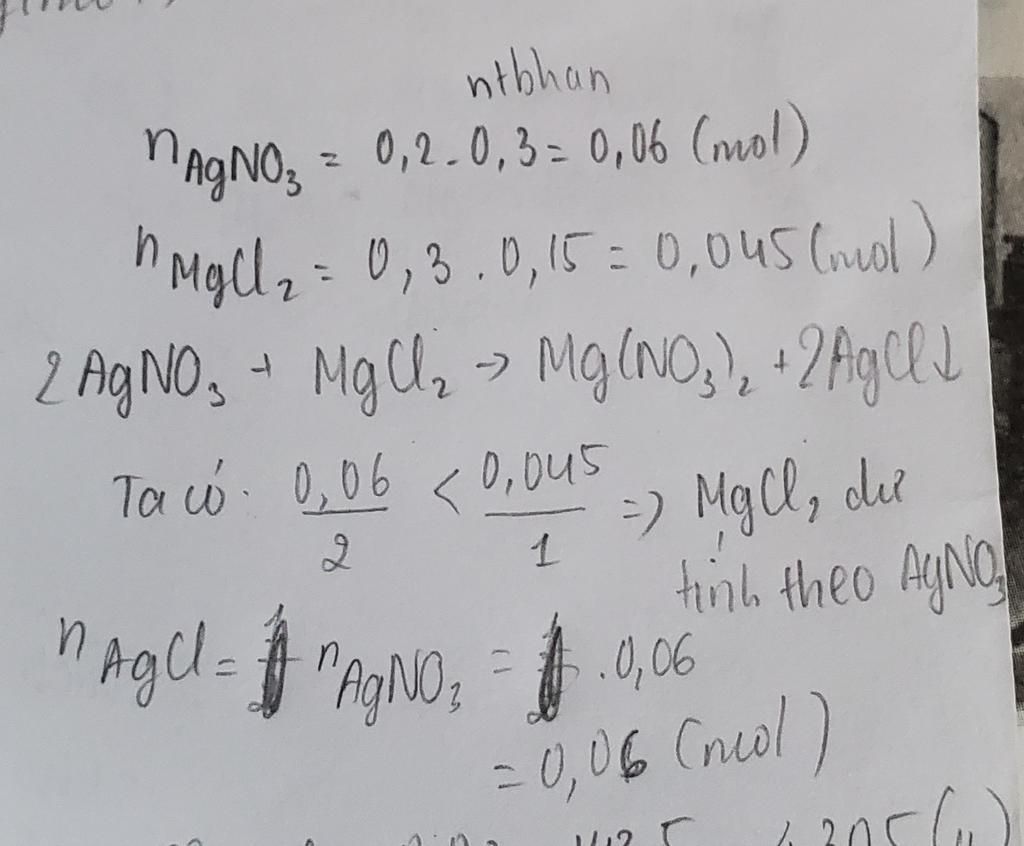 ntbhan
nAgNO₃ = 0,2 . 0,3 = 0,06 (mol)
nMgCl₂ = 0,3 . 0,15 = 0,045 (mol)
2AgNO₃ + MgCl₂ → Mg(NO₃)₂ + 2AgCl↓
Ta có: 0,06/2 < 0,045/1 => MgCl₂ dư
tính theo AgNO₃
nAgCl = nAgNO₃ = . 0,06
= 0,06 (mol)